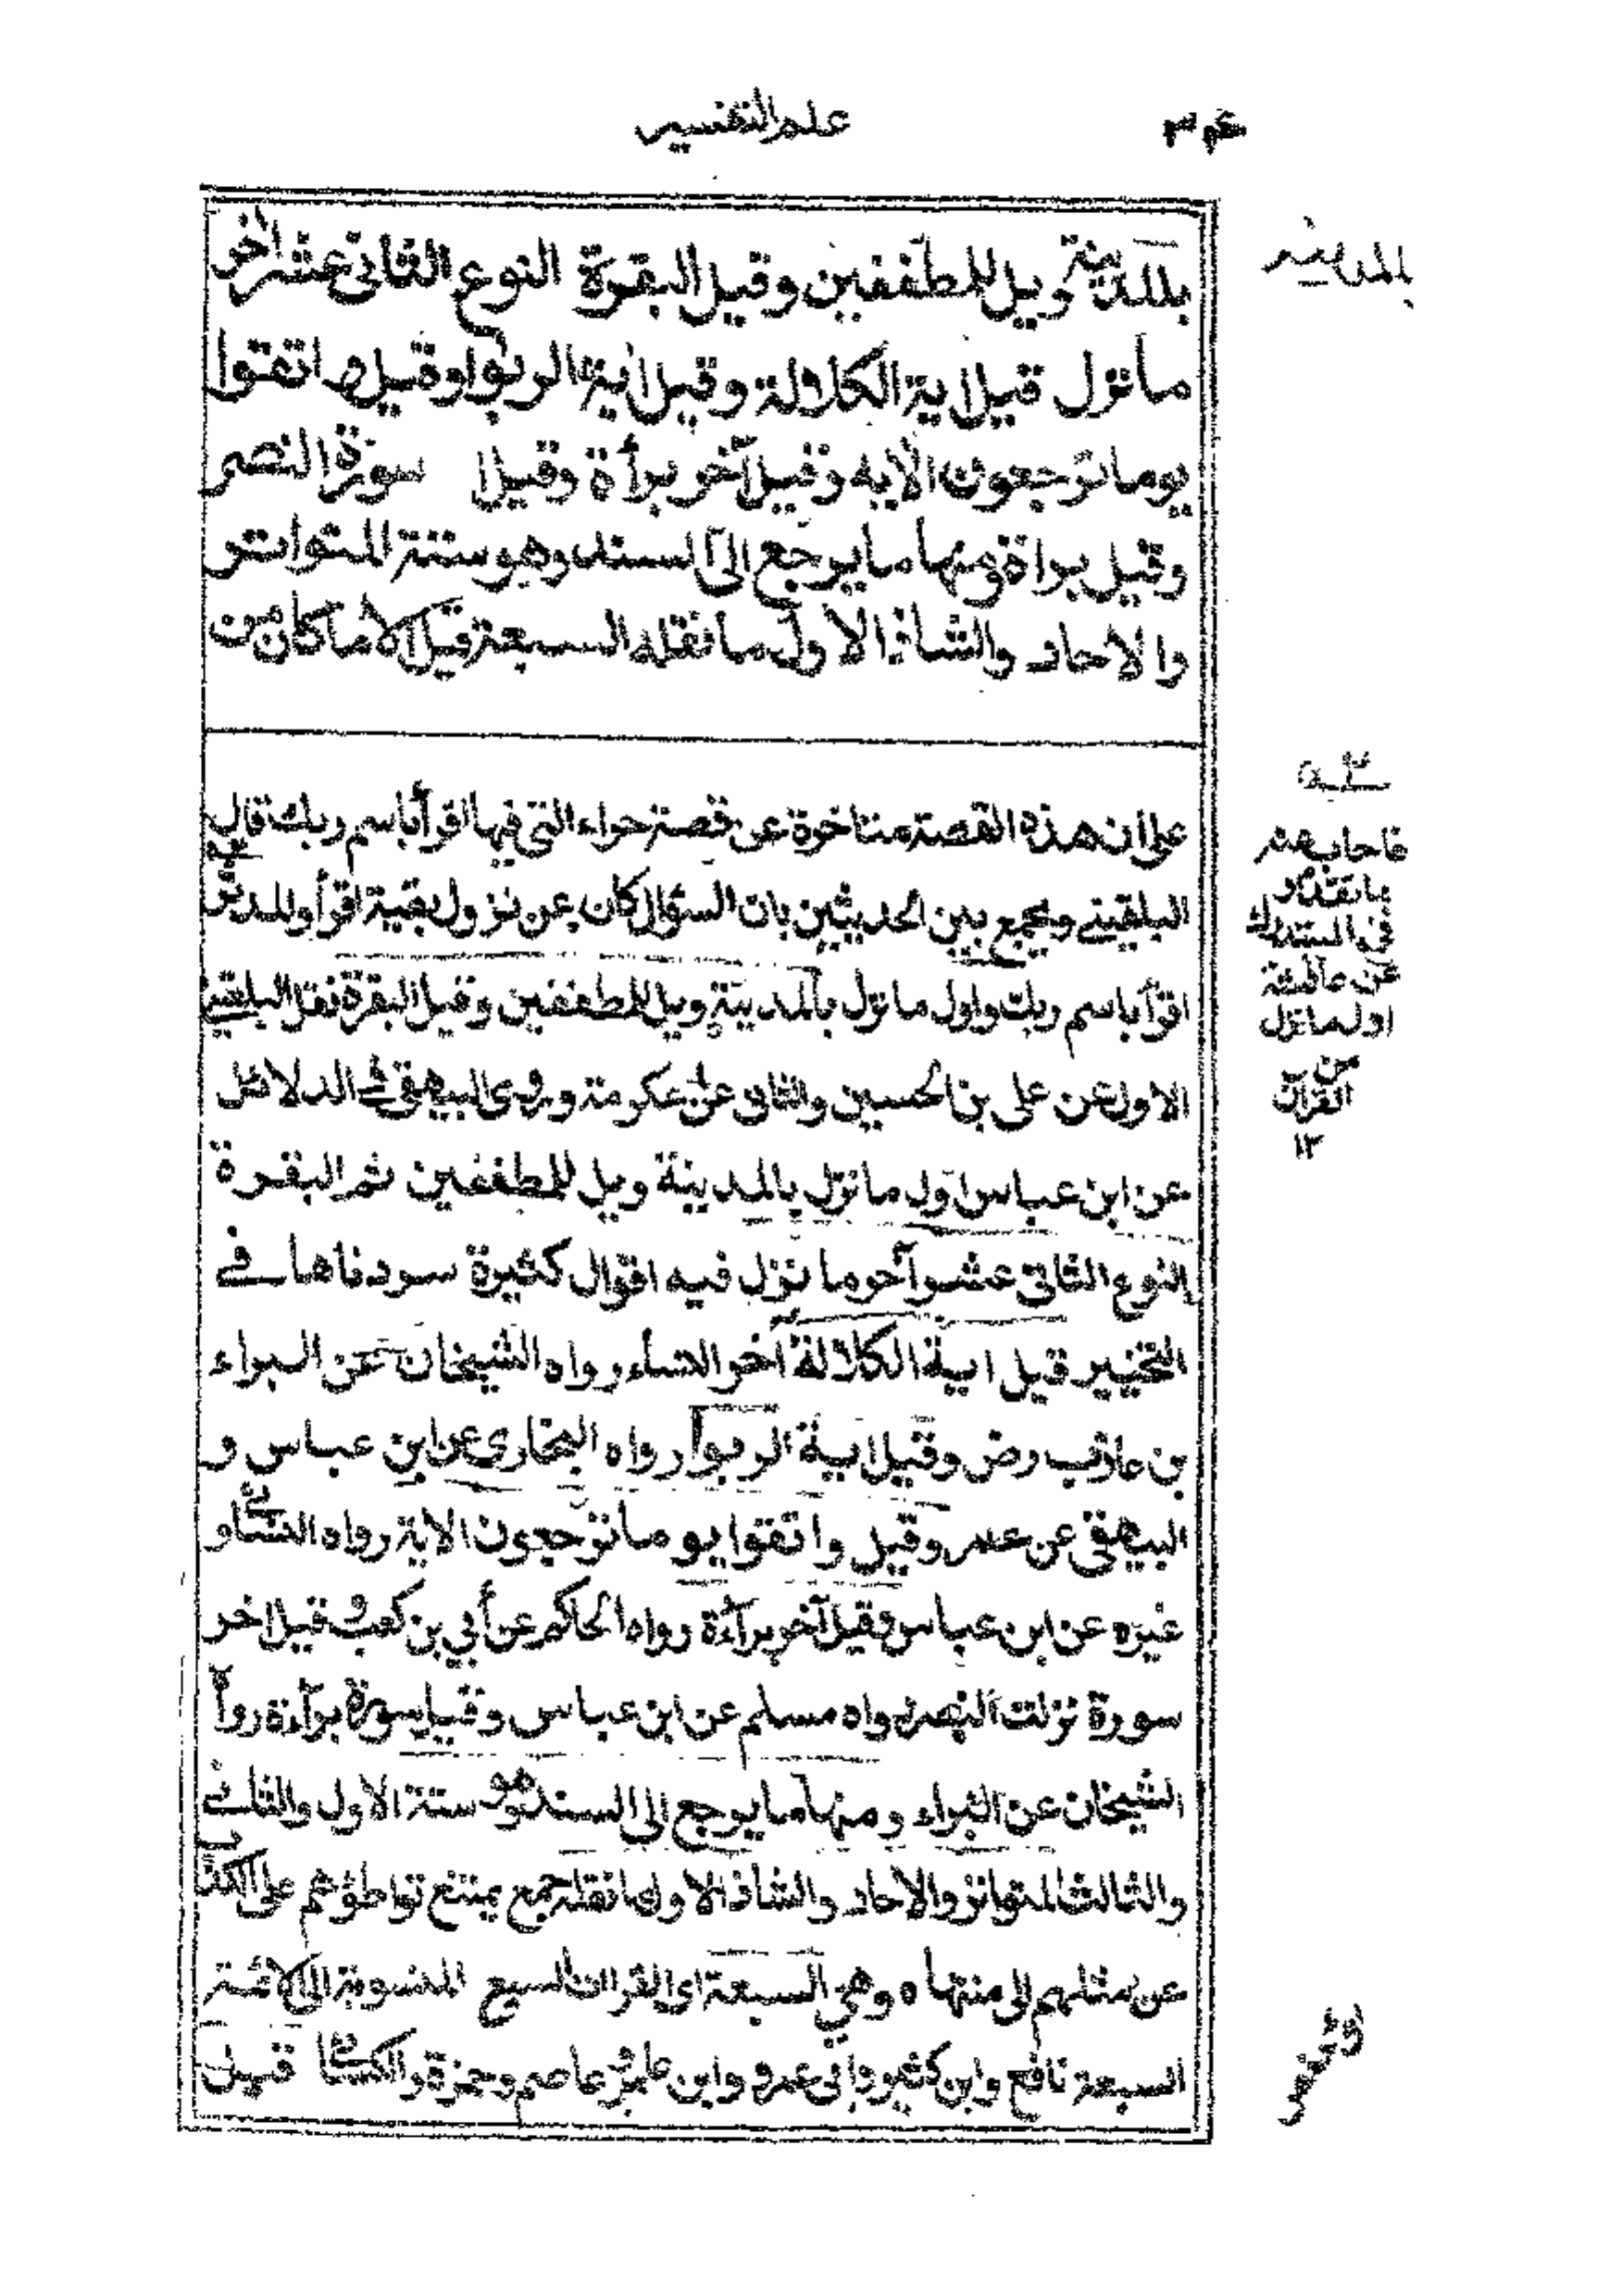 علم التفسير
٣٤
بالمدينة ويل للمطففين وقيل البقرة النوع الثاني عشر اخر
بالمدينة
ما نزل قيل اية الكلالة وقيل اية الربوا وقيل واتقوا
يوما ترجعون الاية وقيل آخر برأة وقيل سورة النصر
وقيل براة ومنها ما يرجع الى السند وهو ستة المتواتر
والاحاد والشاذ الاول ما نقله السبعة قيل الا ما كان من
على ان هذه القصة متاخرة عن قصة حراء التي فيها اقرأ باسم ربك قال
البلقيني ويجمع بين الحديثين بان السؤال كان عن نزول بقية اقرأ والمدثر
اقرأ باسم ربك واول ما نزل بالمدينة ويل للمطففين وقيل البقرة نقل البلقيني
الاول عن علي بن الحسين والثاني عن عكرمة وروى البيهقي في الدلائل
عن ابن عباس اول ما نزل بالمدينة ويل للمطففين ثم البقرة
النوع الثاني عشر آخر ما نزل فيه اقوال كثيرة سردناها في
التحبير قيل اية الكلالة آخر النساء رواه الشيخان عن البراء
بن عازب رض وقيل اية الربوا رواه البخاري عن ابن عباس و
البيهقي عن عمر وقيل واتقوا يوما ترجعون الاية رواه النسائي و
غيره عن ابن عباس وقيل آخر براءة رواه الحاكم عن أبي بن كعب وقيل اخر
سورة نزلت النصر رواه مسلم عن ابن عباس وقيل سورة براءة رواه
الشيخان عن البراء ومنها ما يرجع الى السند وهو ستة الاول والثاني
والثالث المتواتر والاحاد والشاذ الاول ما نقله جمع يمتنع تواطؤهم على الكذب
عن مثلهم الى منتهاه وهي السبعة اى القراات السبع المنسوبة الى الائمة
السبعة نافع وابن كثير وابي عمرو وابن عامر وعاصم وحمزة والكسائي قيل
في المستدرك
عن عائشة
اول ما نزل
من
القرآن
١٢